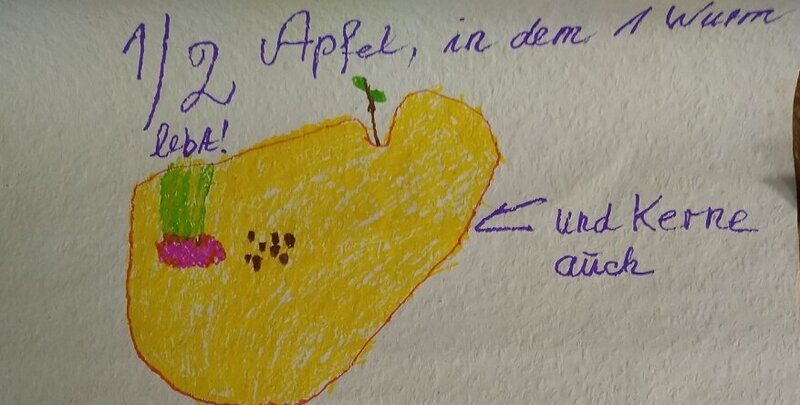 1/2 Apfel, in dem 1 Wurm
lebt!
und Kerne
auch